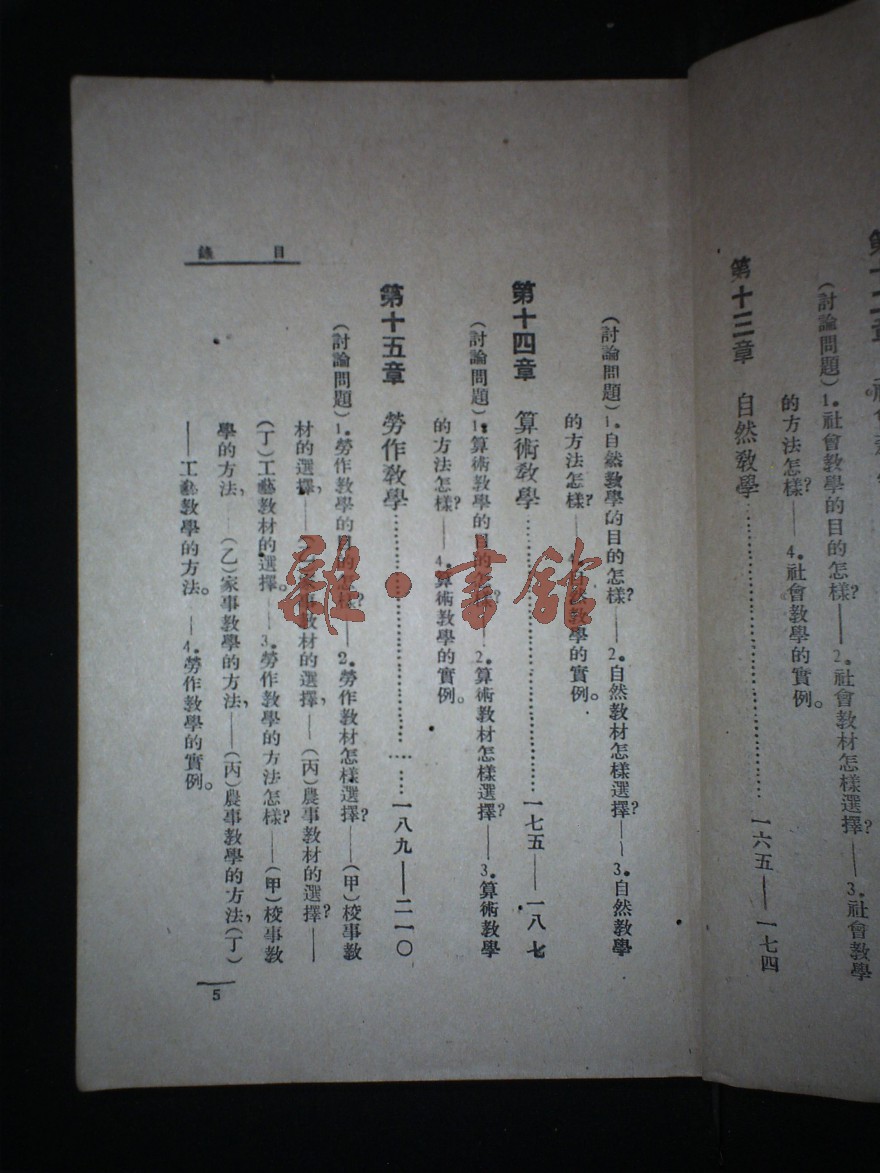 (討論問題)1.社會教學的目的怎樣?——2.社會教材怎樣選擇?——3.社會教學
的方法怎樣?——4.社會教學的實例。
第十三章 自然教學……………………一六五——一七四
目錄
(討論問題)1.自然教學的目的怎樣?——2.自然教材怎樣選擇?——3.自然教學
的方法怎樣?——4.自然教學的實例。
第十四章 算術教學……………………一七五——一八七
(討論問題)1.算術教學的目的怎樣?——2.算術教材怎樣選擇?——3.算術教學
的方法怎樣?——4.算術教學的實例。
第十五章 勞作教學……………………一八九——二一〇
(討論問題)1.勞作教學的目的怎樣?——2.勞作教材怎樣選擇?——(甲)校事教
材的選擇,——(乙)家事教材的選擇,——(丙)農事教材的選擇?——
(丁)工藝教材的選擇。——3.勞作教學的方法怎樣?——(甲)校事教
學的方法,——(乙)家事教學的方法,——(丙)農事教學的方法,(丁)
——工藝教學的方法。——4.勞作教學的實例。
5
雜·書館